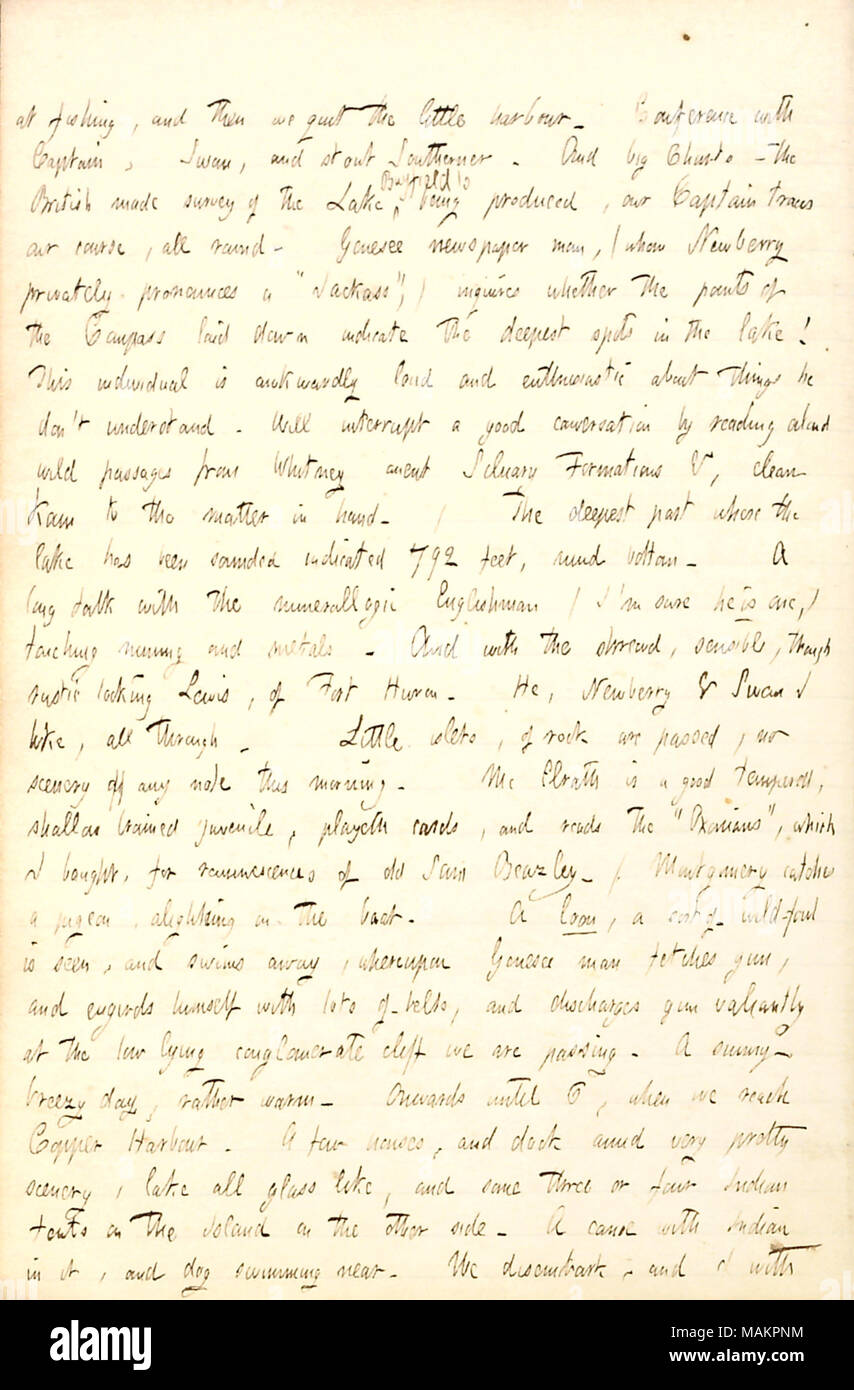 at fishing, and then we quit the little harbour. Conference with
Captain, Swan, and stout Southerner. And big Charts - the
British made survey of the Lake, Bayfield's being produced, our Captain traces
our course, all round. Genesee newspaper man, (whom Newberry
privately pronounces a "Jackass",) inquires whether the points of
the Compass laid down indicate the deepest spots in the lake!
This individual is awkwardly loud and enthusiastic about things he
don't understand. Will interrupt a good conversation by reading aloud
wild passages from Whitney anent Silurian Formations &, clean
kam to the matter in hand. / The deepest part where the
lake has been sounded indicated 792 feet, mud bottom. A
long talk with the minerallogic Englishman (I'm sure he is one,)
touching mining and metals. And with the shrewd, sensible, though
rustic looking Lewis, of Fort Huron. He, Newberry & Swan I
like, all through. Little islets, of rock are passed, no
scenery off any note this morning. Mc Elrath is a good tempered,
shallow brained juvenile, playeth cards, and reads the "Oxonians", which
I bought, for reminescences of old Sam Beazley. / Montgomery catches
a pigeon, alighting on the boat. A Loon, a sort of wild-fowl
is seen, and swims away, whereupon Genesee man fetches gun,
and engirds himself with lots of belts, and discharges gun valiantly
at the low lying conglomerate cliff we are passing. A sunny
breezy day, rather warm. Onwards until 6, when we reach
Copper Harbour. A few houses, and dock amid very pretty
scenery, lake all glass like, and some three or four Indian
tents on the island on the other side. A canoe with Indian
in it, and dog swimming near. We disembark, and I with
alamy
Image ID: MAKPNM
www.alamy.com